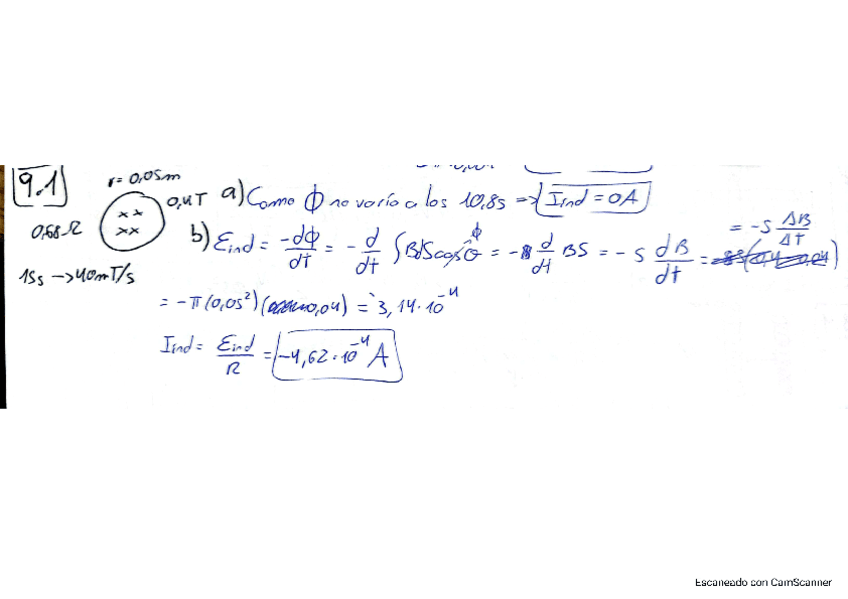 9.1
r = 0,05m
0,4T
0,68 Ω
xx
xx
15s → 40mT/s
a) Como ϕ no varía a los 10,8s ⇒ Iind = 0A
b) Ɛind = -dϕ/dT = - d/dt ∫BdS cosθ = - d/dt BS = - S dB/dt = = -S ΔB/ΔT
= -π(0,05²)(0,04) = -3,14·10⁻⁴
Iind = Ɛind/R = -4,62·10⁻⁴ A
Escaneado con CamScanner